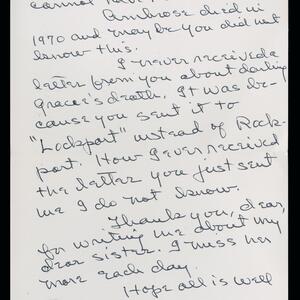 cannot
Ambrose died in
1970 and may be you did not
know this.
I never received a
letter from you about darling
Grace's death. It was be-
cause you sent it to
"Lockport" instead of Rock-
port. How I ever received
the letter you just sent
me I do not know.
Thank you, dear,
for writing me about my
dear sister. I miss her
more each day.
Hope all is well